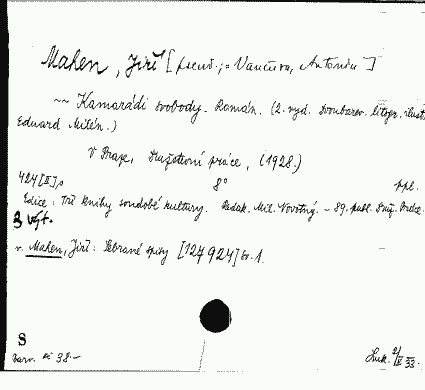 Mahen, Jiří [pseud.;= Vančura, Antonín]
~~ Kamarádi svobody. Román. (2. vyd. Dvoubarev. litogr. ilust
Eduard Milén.)
V Praze, Družstevní práce, (1928.)
424 [II] s 8° ppl.
Edice: Tři knihy soudobé kultury. Redak. Mil. Novotný. - 89. publ. Druž. Práce.
3 výt.
v. Mahen, Jiří: Sebrané spisy [127924] sv. 1.
S
Kč 38.-